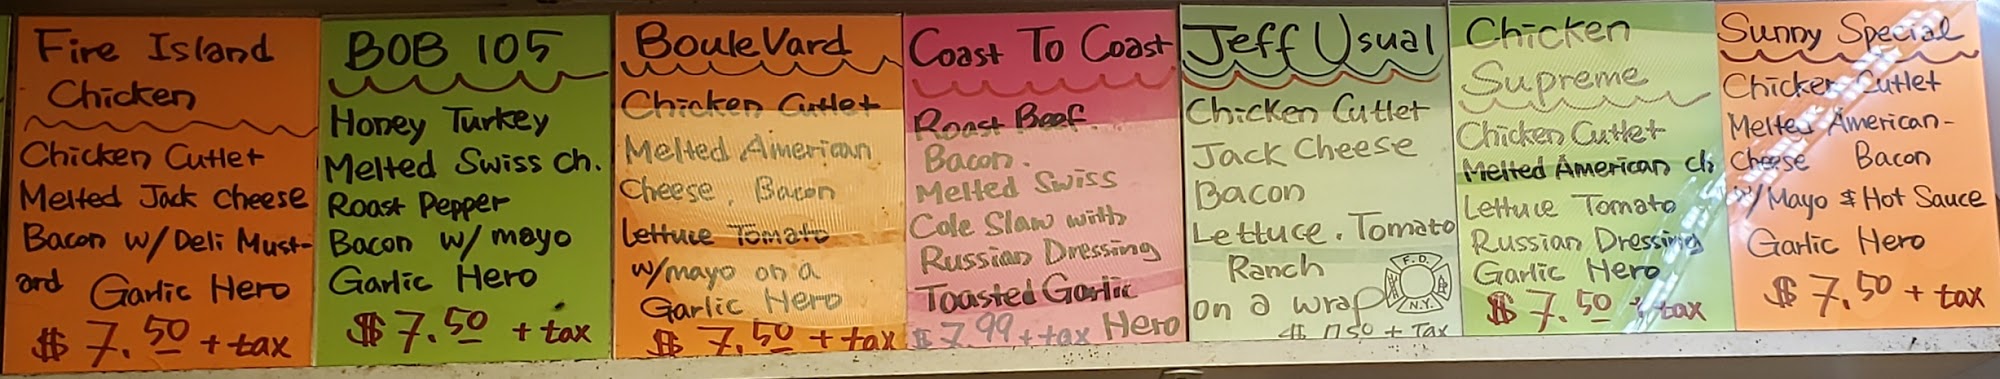 Fire Island
Chicken
Chicken Cutlet
Melted Jack cheese
Bacon w/Deli Must-
ard Garlic Hero
$7.50 + tax
BOB 105
Honey Turkey
Melted Swiss ch.
Roast Pepper
Bacon w/ mayo
Garlic Hero
$7.50 + tax
BouleVard
Chicken Cutlet
Melted American
Cheese, Bacon
Lettuce Tomato
w/mayo on a
Garlic Hero
$7.50 + tax
Coast To Coast
Roast Beef.
Bacon.
Melted Swiss
Cole Slaw with
Russian Dressing
Toasted Garlic
Hero
$7.99 + tax
Jeff Usual
Chicken Cutlet
Jack Cheese
Bacon
Lettuce. Tomato
Ranch
on a wrap
F.D.
N.Y.
+ Tax
Chicken
Supreme
Chicken Cutlet
Melted American ch
Lettuce Tomato
Russian Dressing
Garlic Hero
$7.50 + tax
Sunny Special
Chicken Cutlet
Melted American-
Cheese Bacon
w/Mayo & Hot Sauce
Garlic Hero
$7.50 + tax